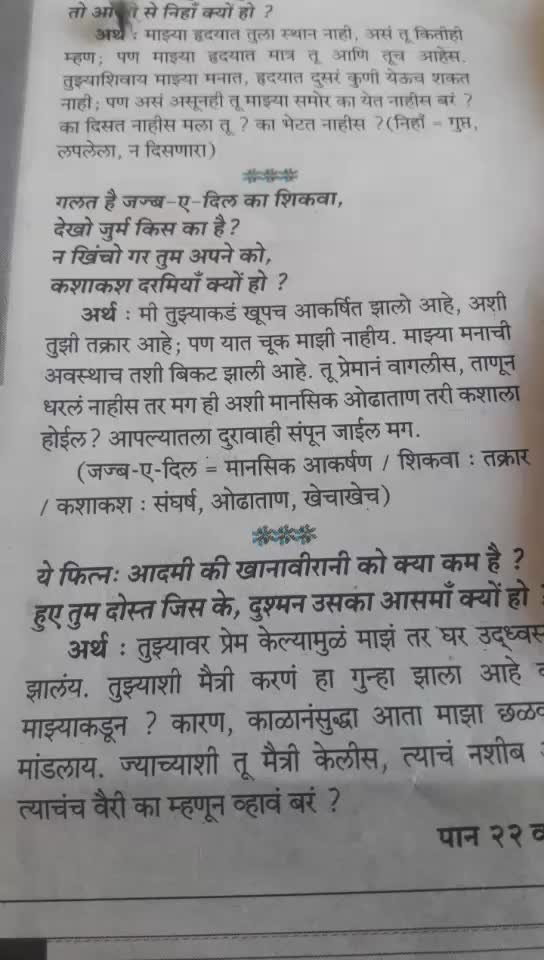 तो आ से निहाँ क्यों हो ?
अर्थ : माझ्या हृदयात तुला स्थान नाही, असं तू कितीही
म्हण; पण माझ्या हृदयात मात्र तू आणि तूच आहेस.
तुझ्याशिवाय माझ्या मनात, हृदयात दुसरं कुणी येऊच शकत
नाही; पण असं असूनही तू माझ्या समोर का येत नाहीस बरं ?
का दिसत नाहीस मला तू ? का भेटत नाहीस ? (निहाँ = गुप्त,
लपलेला, न दिसणारा)
गलत है जज्ब-ए-दिल का शिकवा,
देखो जुर्म किस का है?
न खिंचो गर तुम अपने को,
कशाकश दरमियाँ क्यों हो ?
अर्थ : मी तुझ्याकडं खूपच आकर्षित झालो आहे, अशी
तुझी तक्रार आहे; पण यात चूक माझी नाहीय. माझ्या मनाची
अवस्थाच तशी बिकट झाली आहे. तू प्रेमानं वागलीस, ताणून
धरलं नाहीस तर मग ही अशी मानसिक ओढाताण तरी कशाला
होईल? आपल्यातला दुरावाही संपून जाईल मग.
(जज्ब-ए-दिल = मानसिक आकर्षण / शिकवा : तक्रार
/ कशाकश : संघर्ष, ओढाताण, खेचाखेच)
ये फित्नः आदमी की खानावीरानी को क्या कम है ?
हुए तुम दोस्त जिस के, दुश्मन उसका आसमाँ क्यों हो
अर्थ : तुझ्यावर प्रेम केल्यामुळं माझं तर घर उद्ध्वस
झालंय. तुझ्याशी मैत्री करणं हा गुन्हा झाला आहे
माझ्याकडून ? कारण, काळानंसुद्धा आता माझा छळ
मांडलाय. ज्याच्याशी तू मैत्री केलीस, त्याचं नशीब
त्याचंच वैरी का म्हणून व्हावं बरं ?
पान २२ व